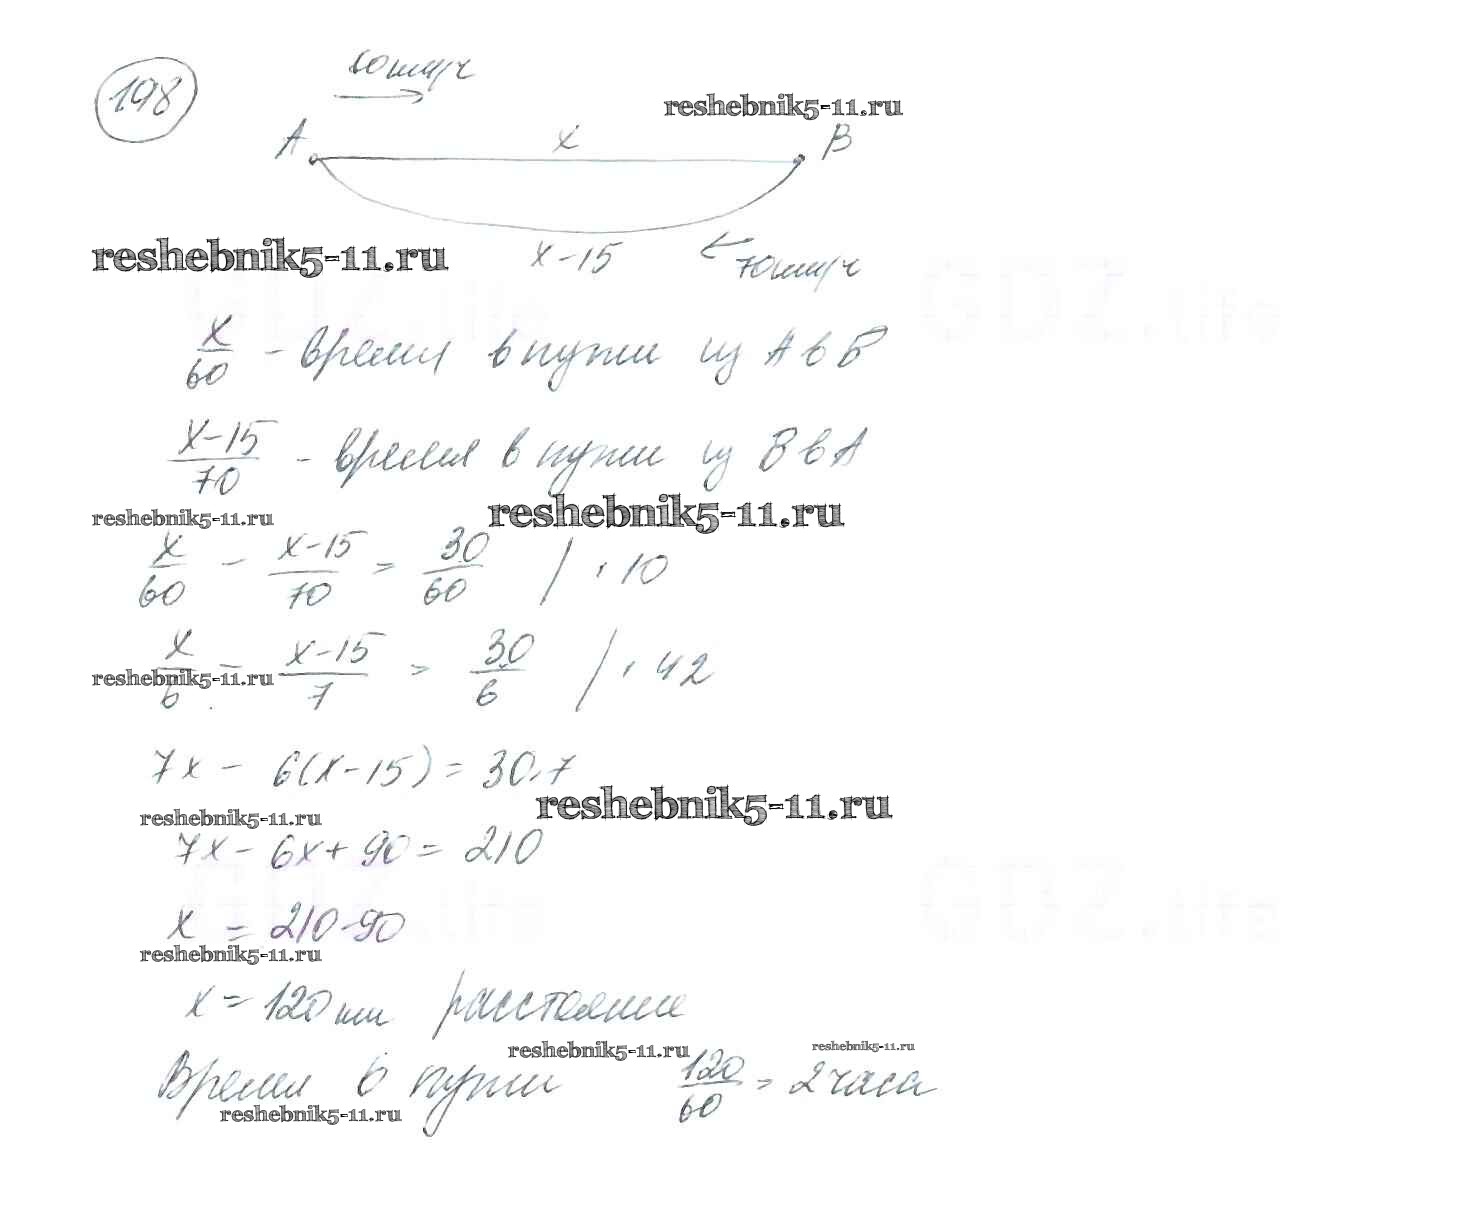 198
60 км/ч
reshebnik5-11.ru
A x B
reshebnik5-11.ru
x-15
70 км/ч
GDZ.life GDZ.life
x/60 - время в пути из А в В
(x-15)/70 - время в пути из В в А
reshebnik5-11.ru reshebnik5-11.ru
x/60 - (x-15)/70 = 30/60 | · 10
x/6 - (x-15)/7 = 30/6 | · 42
reshebnik5-11.ru
7x - 6(x-15) = 30·7
reshebnik5-11.ru reshebnik5-11.ru
7x - 6x + 90 = 210
GDZ.life GDZ.life
x = 210-90
reshebnik5-11.ru
x = 120 км расстояние
reshebnik5-11.ru reshebnik5-11.ru
Время в пути 120/60 = 2 часа
reshebnik5-11.ru